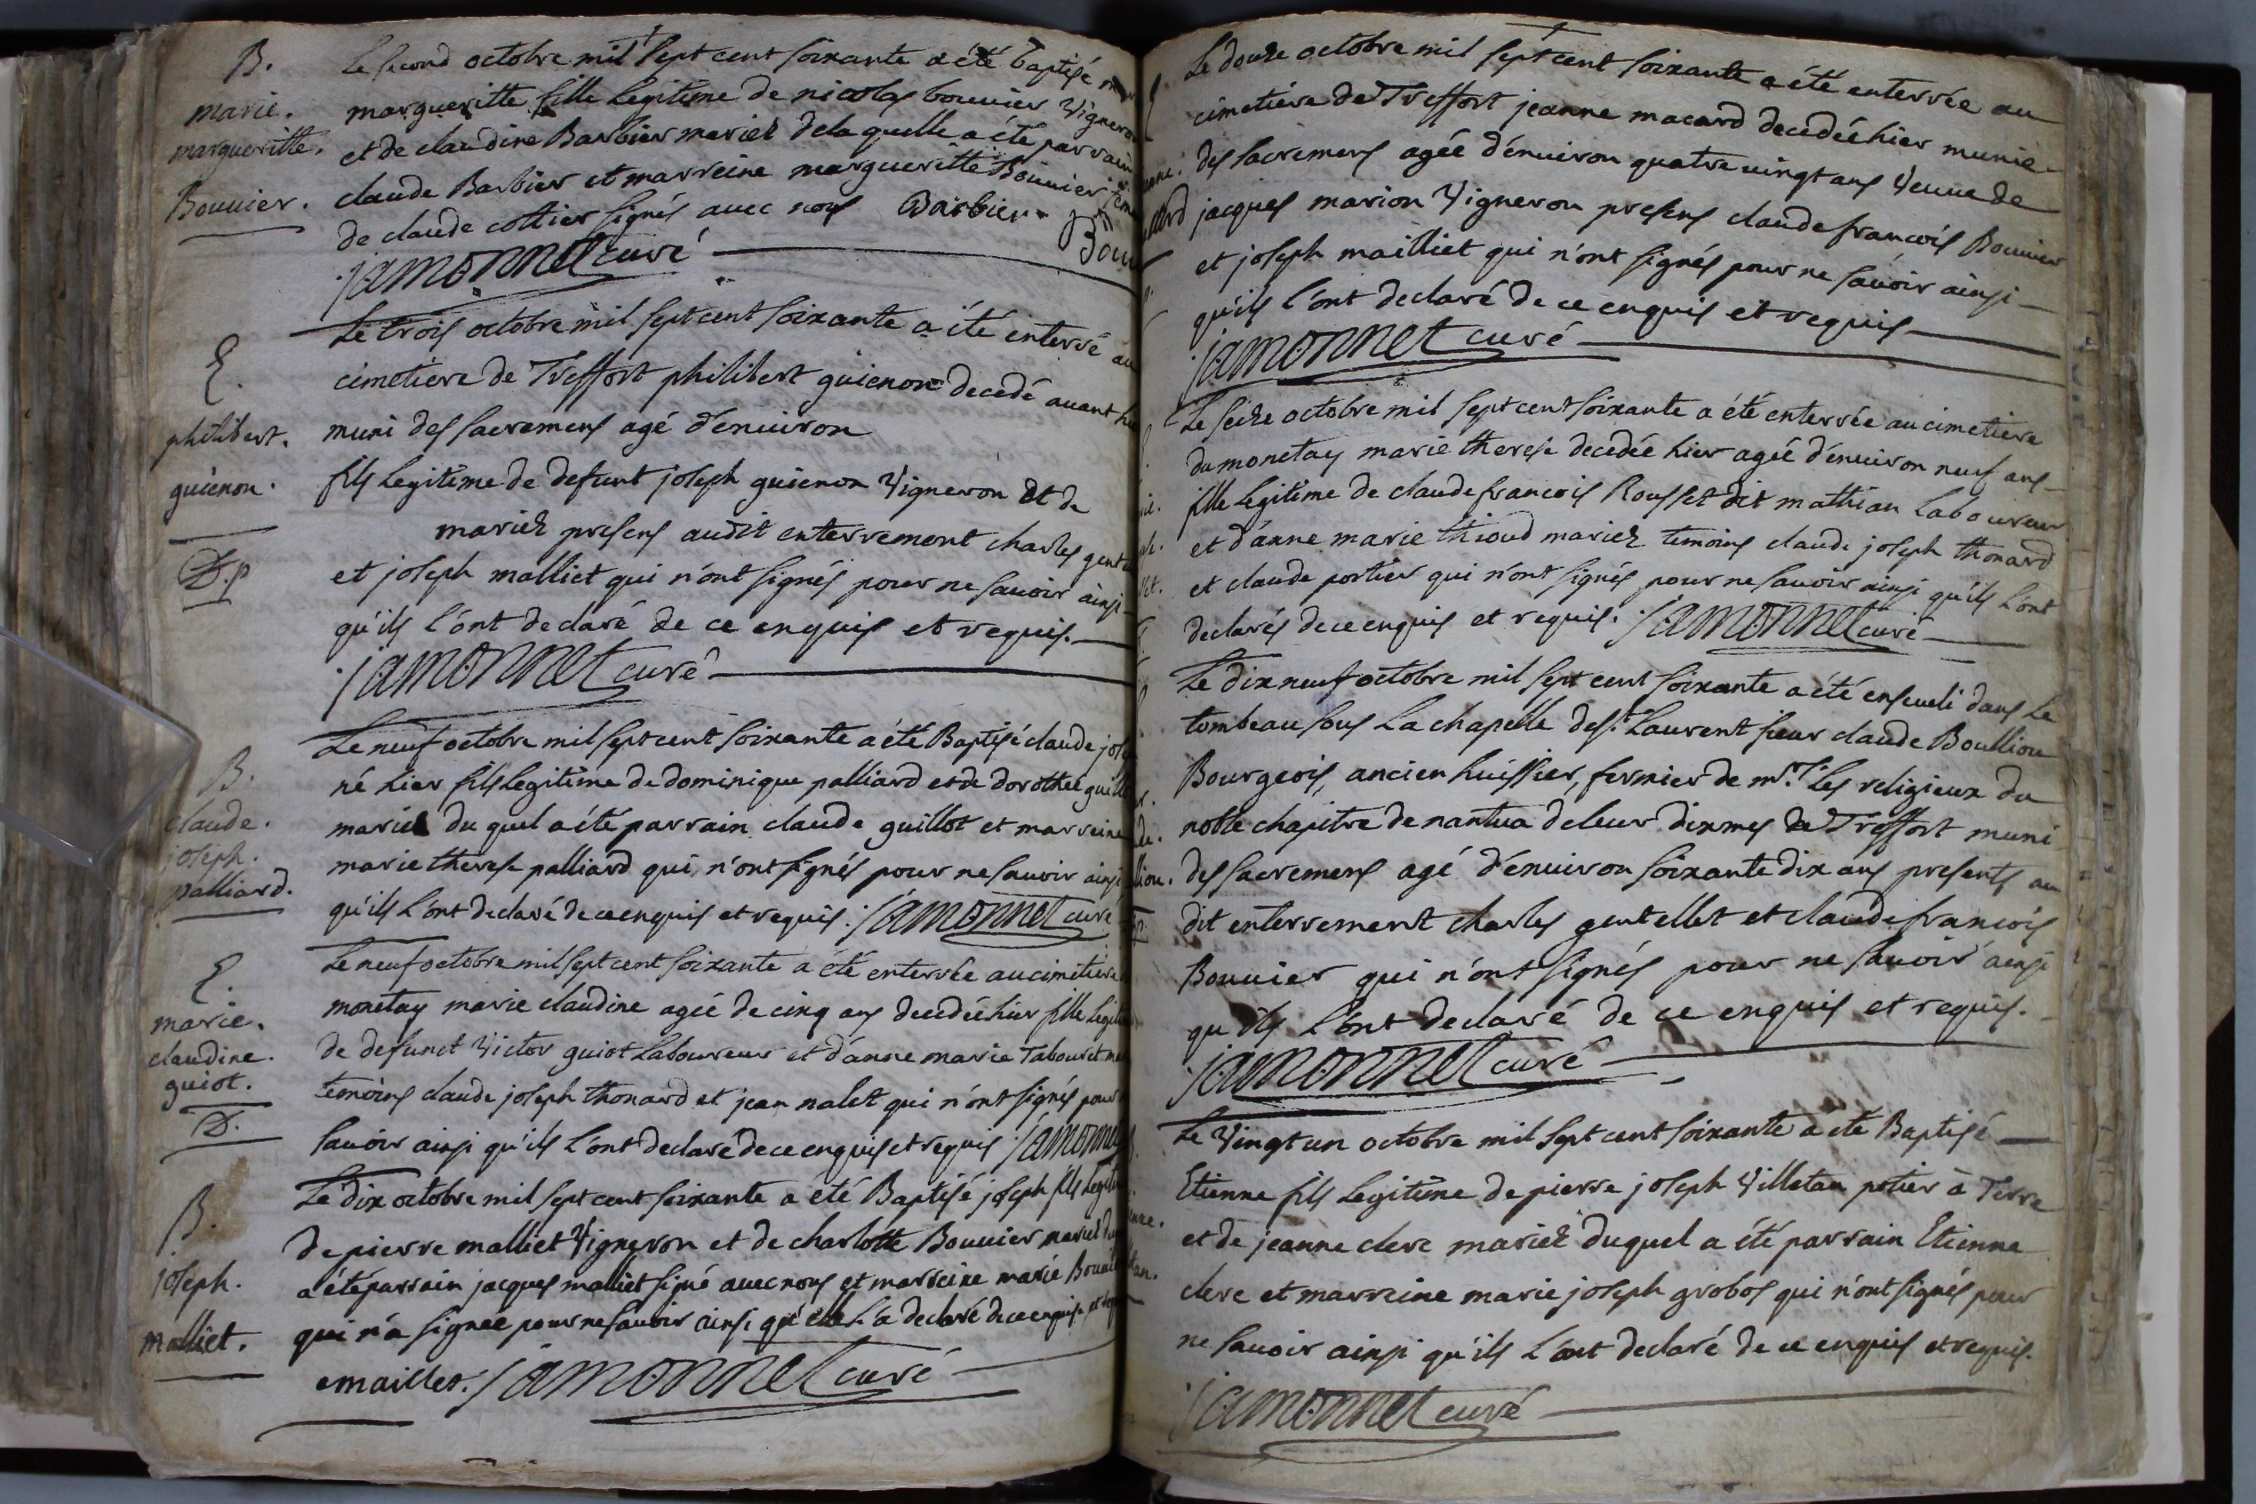 B.
marie.
margueritte.
Bouuier.
Le second octobre mil sept cent soixante a été baptisé
margueritte fille legitime de nicolas bouuier Vigneron
et de claudine Barbier mariez delaquelle a été parrain
claude Barbier et marreine margueritte Bouuier
de claude cottier signés auec nous Barbier
jamonnet curé
E.
philibert.
guienon.
D.p
Le trois octobre mil sept cent soixante a été enterré au
cimetiere de Treffort philibert guienon decedé auant
muni des sacremens agé d'enuiron
fils legitime de defunt joseph guienon Vigneron et de
mariez presens audit enterrement charles
et joseph malliet qui n'ont signés pour ne sauoir ainsi
qu'ils l'ont declaré de ce enquis et requis.
jamonnet curé
B.
claude.
joseph.
palliard.
Le neuf octobre mil sept cent soixante a été Baptisé claude
né hier fils legitime de dominique palliard et de dorothée
mariez du quel a été parrain claude guillot et marreine
marie therese palliard qui n'ont signés pour ne sauoir ainsi
qu'ils l'ont declaré de ce enquis et requis. jamonnet curé
E.
marie.
claudine.
guiot.
D.
Le neuf octobre mil sept cent soixante a été enterrée au cimetiere
monetay marie claudine agée de cinq ans decedée hier fille
de defunct Victor guiot Laboureur et d'anne marie Tabouret
temoins claude joseph thonard et jean nalet qui n'ont signés pour
sauoir ainsi qu'ils l'ont declaré de ce enquis et requis jamonnet
B.
joseph.
malliet.
Le dix octobre mil sept cent soixante a été Baptisé joseph fils
de pierre malliet Vigneron et de charlotte Bouuier mariez
a été parrain jacques malliet signé auec nous et marreine marie
qui n'a signee pour ne sauoir ainsi qu'elle l'a declaré de ce enquise et
emaillet. jamonnet curé
Le douze octobre mil sept cent soixante a été enterrée au
cimetiere de Treffort jeanne macard decedée hier munie
des sacremens agée d'enuiron quatre uingt ans Veuue de
jacques marion Vigneron presens claude francois Bouuier
et joseph mailliet qui n'ont signés pour ne sauoir ainsi
qu'ils l'ont declaré de ce enquis et requis
jamonnet curé
Le seize octobre mil sept cent soixante a été enterrée au cimetiere
du monetay marie therese decedée hier agée d'enuiron neuf ans
fille legitime de claude francois Rousset dit mathian Laboureur
et d'anne marie thioud mariez temoins claude joseph thonard
et claude portier qui n'ont signés pour ne sauoir ainsi qu'ils l'ont
declarés de ce enquis et requis. jamonnet curé
Le dix neuf octobre mil sept cent soixante a été enseueli dans le
tombeau sous La chapelle de st Laurent sieur claude Boulliou
Bourgeois, ancien huissier, fermier de mrs Les religieux du
noble chapitre de nantua de leur dixmes de Treffort muni
des sacremens agé d'enuiron soixante dix ans presents au
dit enterrement charles gentellet et claude francois
Bouuier qui n'ont signés pour ne sauoir ainsi
qu'ils l'ont declaré de ce enquis et requis.
jamonnet curé
Le Vingt un octobre mil sept cent soixante a été Baptisé
Etienne fils legitime de pierre joseph Villetan potier à Terre
et de jeanne clerc mariez duquel a été parrain Etienne
clerc et marreine marie joseph grobos qui n'ont signés pour
ne sauoir ainsi qu'ils l'ont declaré de ce enquis et requis.
jamonnet curé